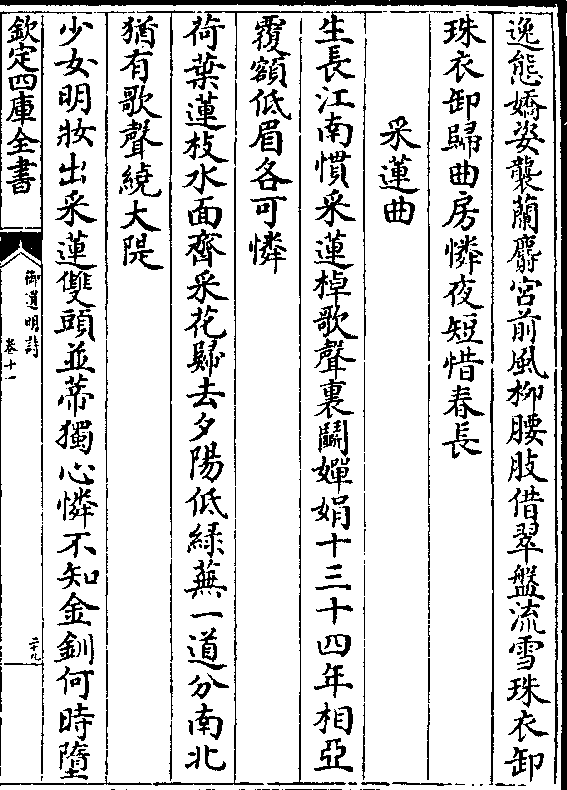 逸態嬌姿襲蘭麝宮前風柳腰肢借翠盤流雪珠衣卸
珠衣卸歸曲房憐夜短惜春長
采蓮曲
生長江南慣采蓮棹歌聲裏鬭嬋娟十三十四年相亞
覆額低眉各可憐
荷葉蓮枝水面齊采花歸去夕陽低綠蕪一道分南北
猶有歌聲繞大隄
少女明妝出采蓮雙頭並蒂獨心憐不知金釧何時墮
欽定四庫全書
御選明詩
卷十一
二十九